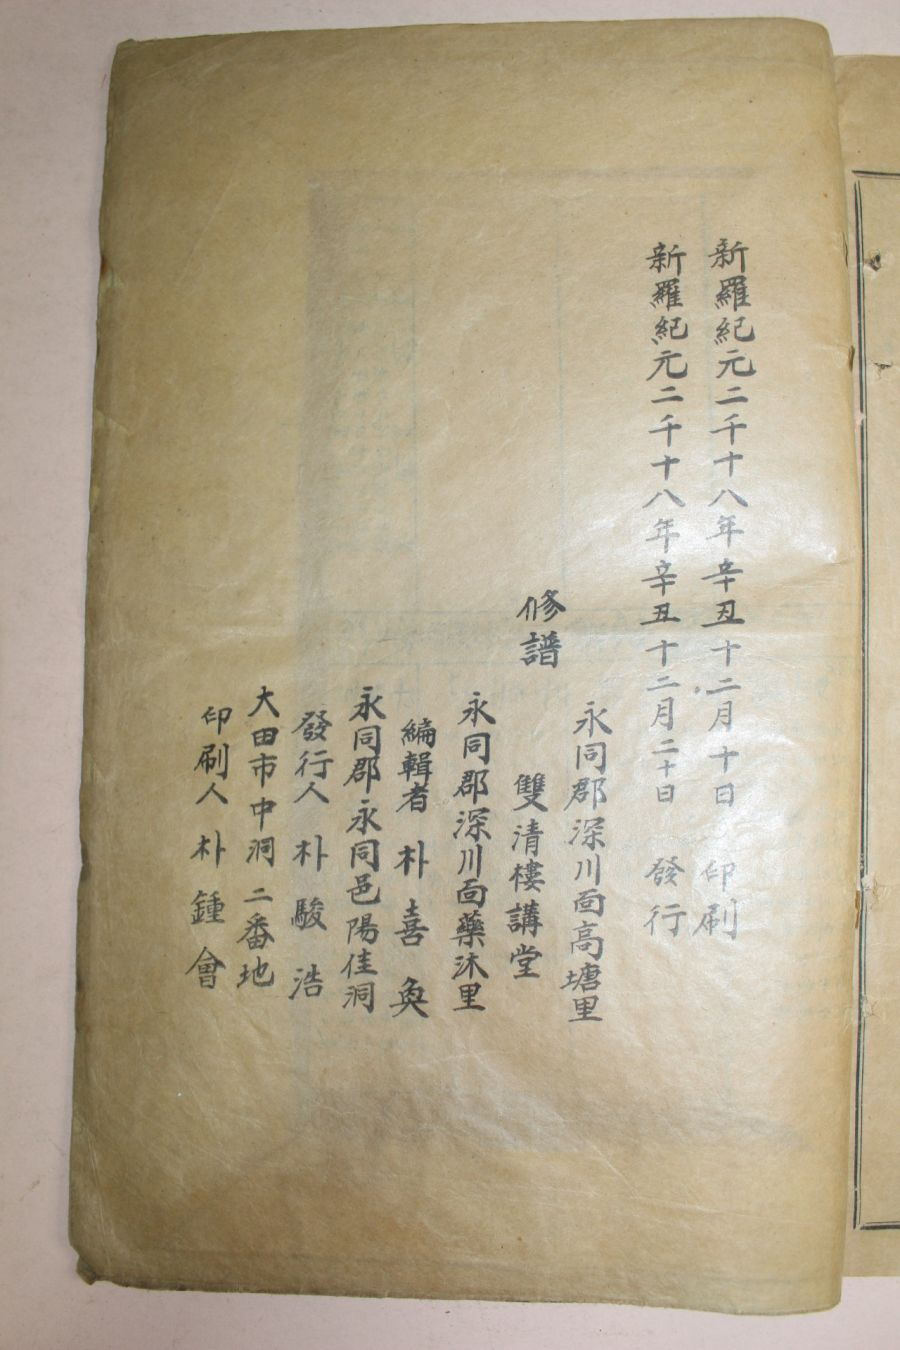 新羅紀元二千十八年辛丑十二月十日 印刷
新羅紀元二千十八年辛丑十二月二十日 發行
永同郡深川面高塘里
修譜 雙清樓講堂
永同郡深川面藥沐里
編輯者 朴喜奐
永同郡永同邑陽佳洞
發行人 朴駿浩
大田市中洞二番地
印刷人 朴鍾會